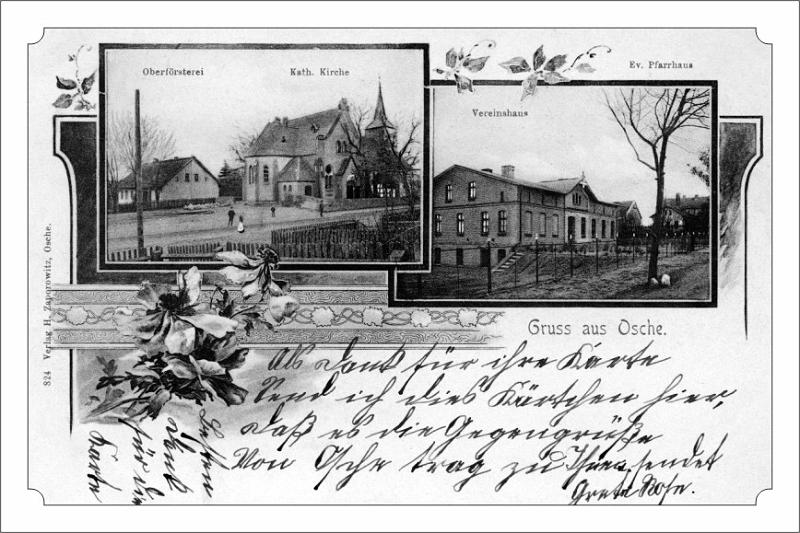 Oberförsterei
Kath. Kirche
Ev. Pfarrhaus
Vereinshaus
824 Verlag H. Zaporowitz, Osche.
Gruss aus Osche.
Als Dank für ihre Karte
Send ich dies Kärtchen hier,
Daß es die Gegengrüße
Von Osche trag zu Ihnen, sendet
Grete Rose.
Besten
Dank
für die
Karte